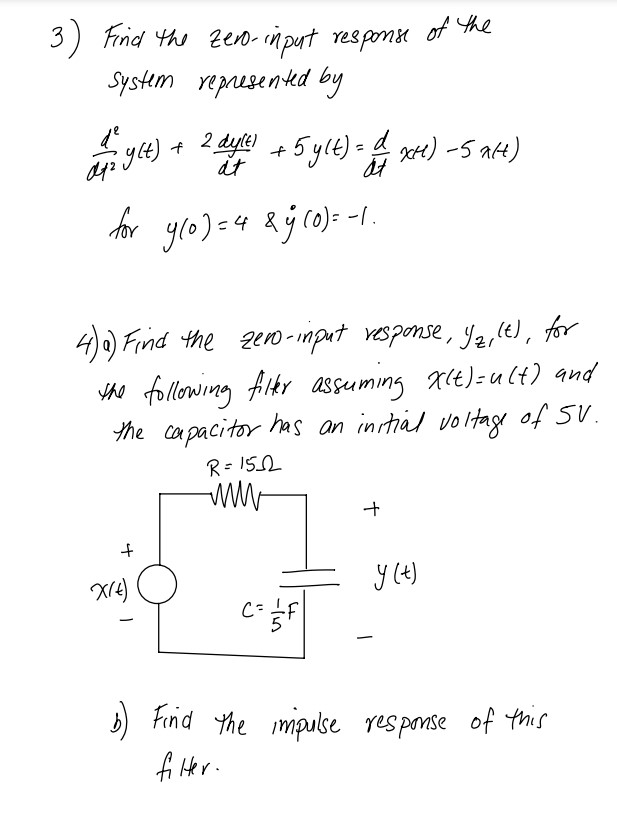 3) Find the zero-input response of the
system represented by
d²/dt² y(t) + 2 dy(t)/dt + 5y(t) = d/dt x(t) - 5x(t)
for y(0)=4 & ẏ(0)= -1.
4) a) Find the zero-input response, y_zi(t), for
the following filter assuming x(t)=u(t) and
the capacitor has an initial voltage of 5V.
R = 15Ω
+
+
x(t)
y(t)
C = 1/5 F
-
-
b) Find the impulse response of this
filter.